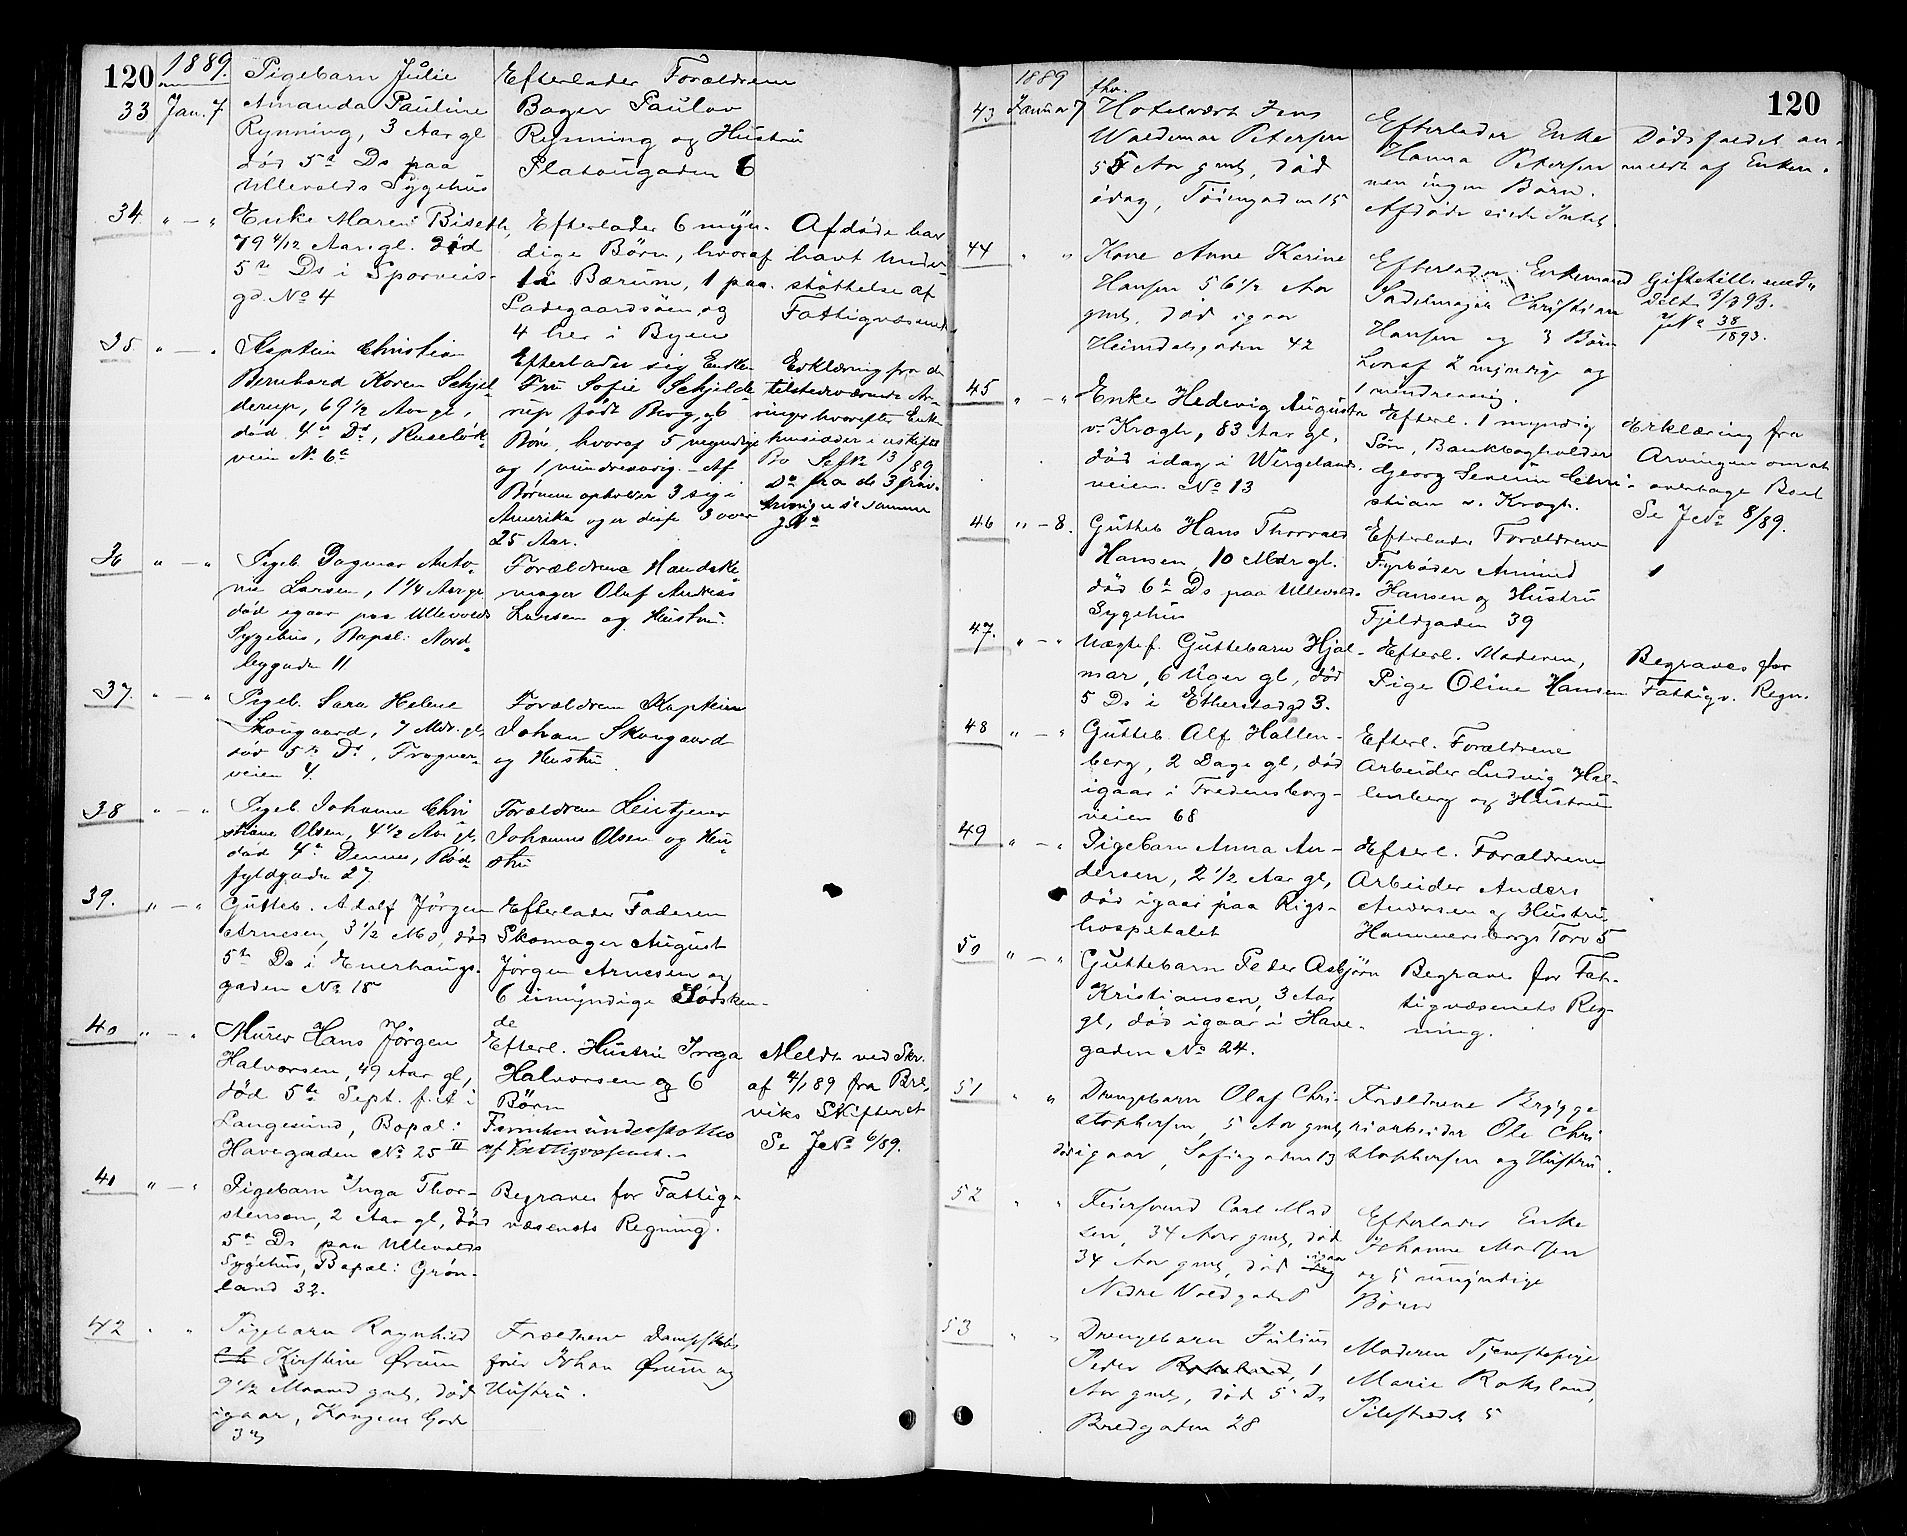 120
1889.
33 Jan. 7
Pigebarn Julie
Amanda Pauline
Rynning, 3 Aar gl
død 5te Ds paa
Ullevolds Sygehus
Efterlader Forældrene
Bager Paulov
Rynning og Hustru
Platougaden 6
34 " — "
Enke Maren Biseth,
79 4/12 Aar gl. død
5te Ds i Sporveis-
gd. No 4
Efterlader 6 myn-
dige Børn, hvoraf
1 i Bærum, 1 paa
Ladegaardsøen og
4 her i Byen
Afdøde har
havt Under-
støttelse af
Fattigvæsenet
35 " — "
Kaptein Christian
Bernhard Koren Schjel-
derup, 69 1/2 Aar gl,
død 4de Ds, Ruseløk-
veien No 6
Efterlader sig Enken
Fru Sofie Schjelde-
rup født Berg og 6
Børn, hvoraf 5 myndige
og 1 mindreaarig. - Af
Børnene opholder 3 sig i
Amerika og er disse 3 over
25 Aar.
Erklæring fra de
tilstedeværende Ar-
vinger hvorefter Enken
hensidder i uskiftet
Bo Se No 13/89
Do fra de 3 fravæ-
se samme
JNo
36 " — "
Pigeb. Dagmar Anto-
nie Larsen, 1 1/4 Aar gl
død igaar paa Ullevolds
Sygehus, Bopæl: Nord-
bygade 11
Forældrene Handske-
mager Oluf Andreas
Larsen og Hustru.
37 " — "
Pigeb. Sara Helene
Skougaard, 7 Mdr. gl,
død 5te Ds, Frogner-
veien 4.
Forældrene Kaptein
Johan Skougaard
og Hustru.
38 " — "
Pigeb. Johanne Chri-
stiane Olsen, 4 1/2 Aar gl.
død 4de Dennes, Rød-
fyldgaden 27
Forældrene Leietjener
Johannes Olsen og Hu-
stru
39. " — "
Gutteb. Adolf Jørgen
Arnesen, 3 1/2 Md, død
5te Ds i Enerhaugs-
gaden No 18
Efterlader Faderen
Skomager August
Jørgen Arnesen og
6 umyndige Sødsken-
de
40 " — "
Murer Hans Jørgen
Halvorsen, 49 Aar gl,
død 5te Sept. f. A i
Langesund, Bopæl:
Havegaden No 25 II
Efterl. Hustru Inga
Halvorsen og 6
Børn
Familien understøttes
af Fattigvæsenet.
Meldt ved Skr.
af 4/1 89 fra Bre-
viks Skifteret
Se JNo 6/89.
41 " — "
Pigebarn Inga Thor-
stensen, 2 Aar gl, død
5te Ds paa Ullevolds
Sygehus, Bopæl: Grøn-
land 32.
Begraves for Fattig-
væsenets Regning.
42 " "
Pigebarn Ragnhild
Kirstine Ørum
9 1/2 Maaned gml, død
igaar, Kongens Gade
3
Forældrene Dampskibs-
fører Johan Ørum og
Hustru.
120
1889
43 Januar 7
fhv.
Hotelvært Jens
Waldemar Petersen
55 Aar gml, død
idag, Tøiengaden 15
Efterlader Enke
Hanna Petersen
men ingen Børn.
Afdøde eiede Intet.
Dødsfaldet an-
meldt af Enken.
44 " "
Kone Anne Karine
Hansen 56 1/2 Aar
gml. død igaar
Heimdalsgaden 42
Efterlader Enkemand
Sadelmager Christian
Hansen og 3 Børn
hvoraf 2 myndige og
1 mindreaarig.
Giftetill. med-
delt 3/1 93.
JNo 38/1893.
45 " — "
Enke Hedevig Augusta
v. Krogh, 83 Aar gl.
død idag i Wergelands-
veien No 13
Efterl. 1 myndig
Søn, Bankbogholder
Georg Severin Chri-
stian v. Krogh.
Erklæring fra
Arvingen om at
overtage Boet
Se JNo 8/89.
46 " - 8.
Gutteb Hans Thorvald
Hansen, 10 Mdr gl.
død 6te Ds paa Ullevolds
Sygehus
Efterlader Forældrene
Fyrbøder Amund
Hansen og Hustru
Fjeldgaden 39
47. " — "
Uægtef. Guttebarn Hjal-
mar, 6 Uger gl, død
5 Ds i Etherstadgd 3.
Efterl. Moderen,
Pige Oline Hansen
Begraves for
Fattigv. Regn.
48 " — "
Gutteb. Alf Hallen-
berg, 2 Dage gl, død
igaar i Fredensborg-
veien 68
Efterl. Forældrene
Arbeider Ludvig Hal-
lenberg og Hustru
49 " — "
Pigebarn Anna An-
dersen, 2 1/2 Aar gl,
død igaar paa Rigs-
hospitalet
Efterl. Forældrene
Arbeider Anders
Andersen og Hustru,
Hammersborgs Torv 5
50 " — "
Guttebarn Peder Asbjørn
Kristiansen, 3 Aar
gl, død igaar i Have-
gaden No 24.
Begraves for Fat-
tigvæsenets Reg-
ning.
51 " "
Drengebarn Olaf Chri-
stophersen, 5 Aar gml,
død igaar, Sofiegaden 13
Forældrene Brygge-
riarbeider Ole Chri-
stophersen og Hustru.
52 " "
Feiersvend Carl Mad-
sen, 34 Aar gml, død
34 Aar gml, død idag igaar
Nedre Voldgade 8
Efterlader Enke
Johanne Madsen
og 5 umyndige
Børn
53 " "
Drengebarn Julius
Peder Roksland, 1
Aar gml, død 5te Ds
Bredgaden 28
Moderen Tjenestepige
Marie Roksland,
Pilestrædet 5